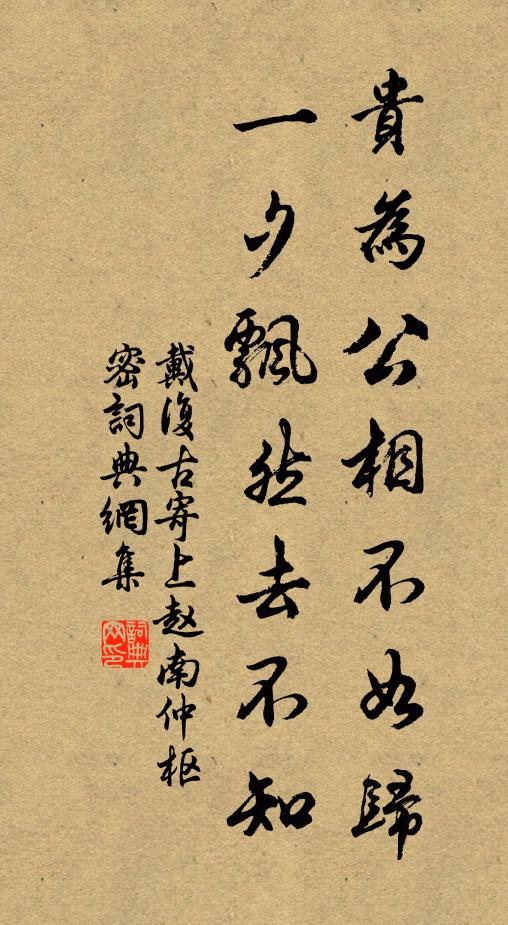 貴為公相不如歸
一夕飄然去不知
戴復古寄上赵南仲枢
密詞典網集
詞典
网印